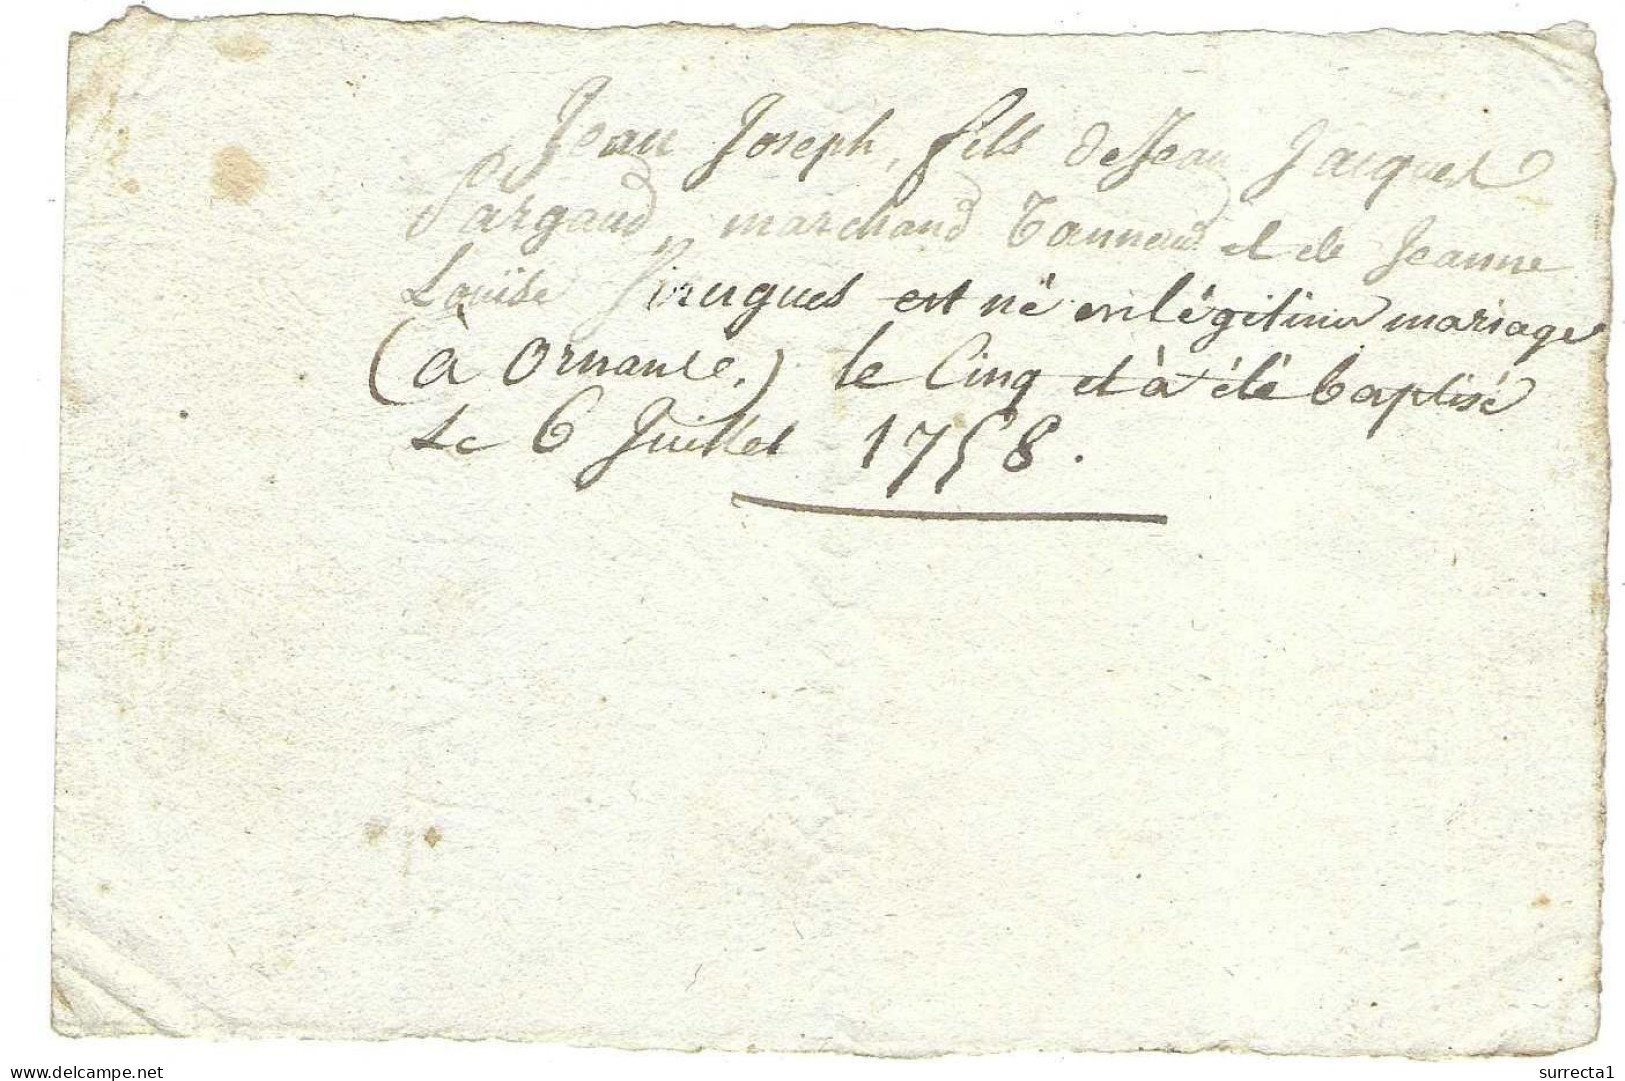 Jean Joseph, fils de Jean Jacques
Pargaud, marchand Tanneur et de Jeanne
Louïse est né en légitime mariage
(à Ornans.) le Cinq et à été baptisé
Le 6 Juillet 1758.
www.delcampe.net
surrecta1